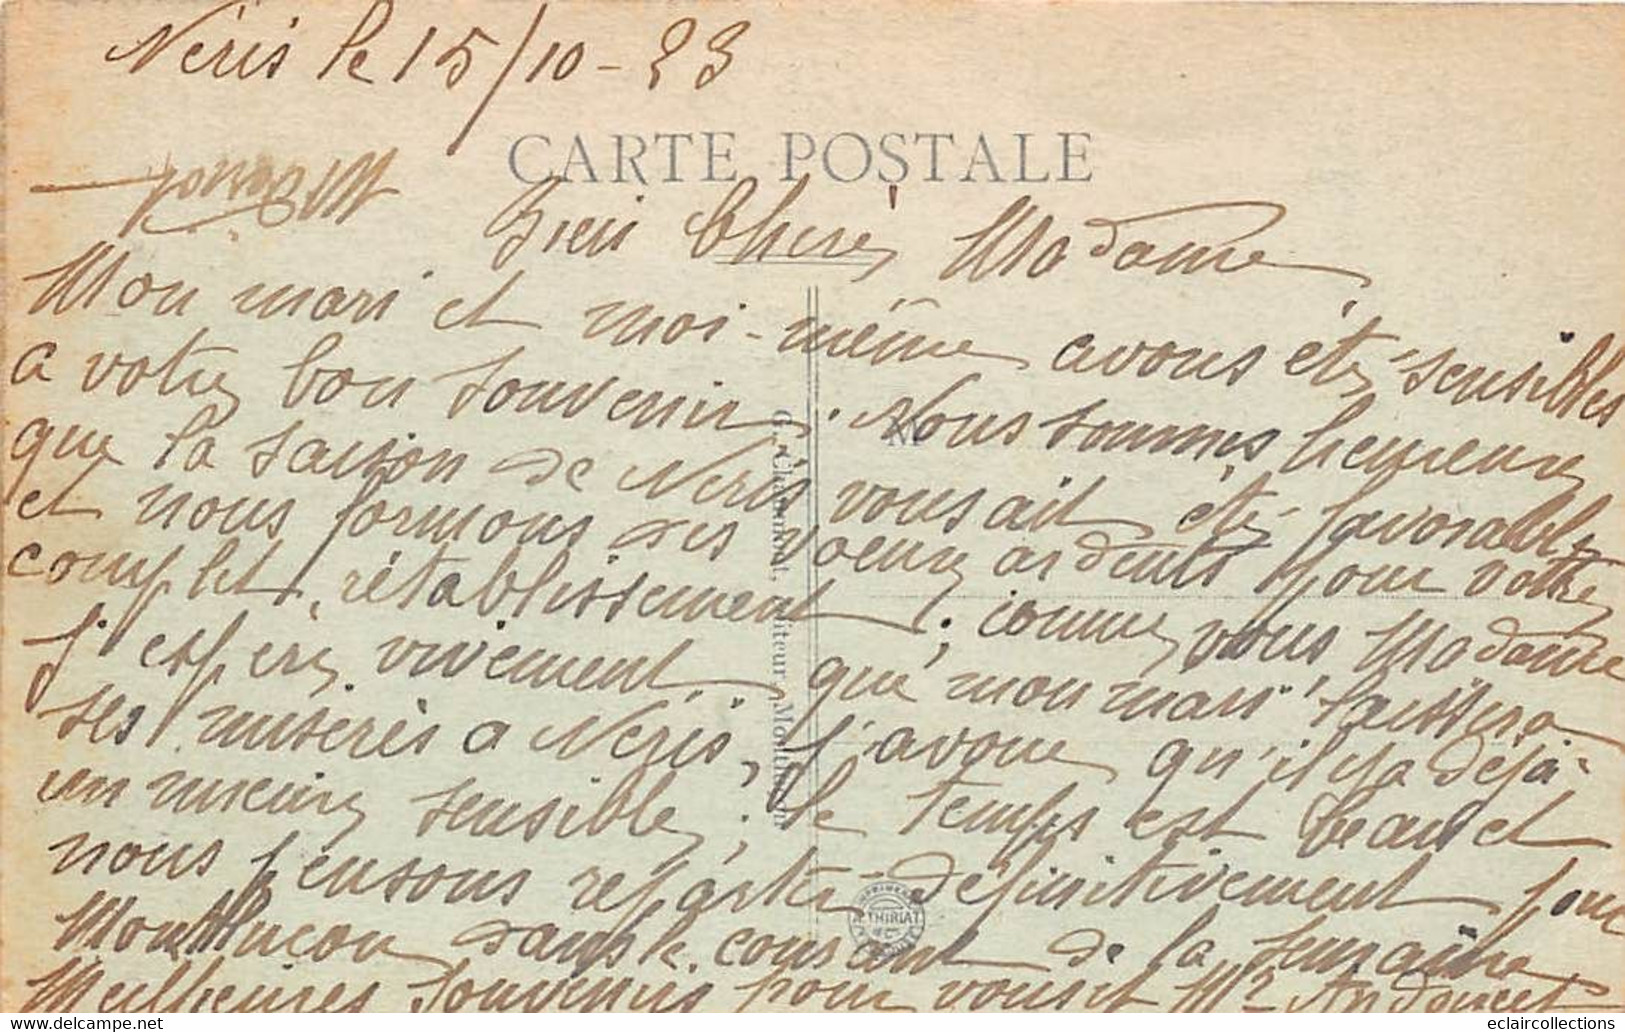 Néris le 15/10 - 23
CARTE POSTALE
Bien Chère Madame
Mon mari et moi-même avons été sensibles
a votre bon souvenir. Nous sommes heureux
que la saison de Néris vous ait été favorable
et nous formons des voeux ardents pour votre
complet rétablissement ; comme vous Madame
j'espère vivement que mon mari laissera
ses misères a Néris, j'avoue qu'il y a déjà
un mieux sensible ; le temps est beau et
nous pensons repartir définitivement pour
Montluçon dans le courant de la semaine
Meilleures souvenirs pour vous et Mr
THIRIAT
eclaircollections